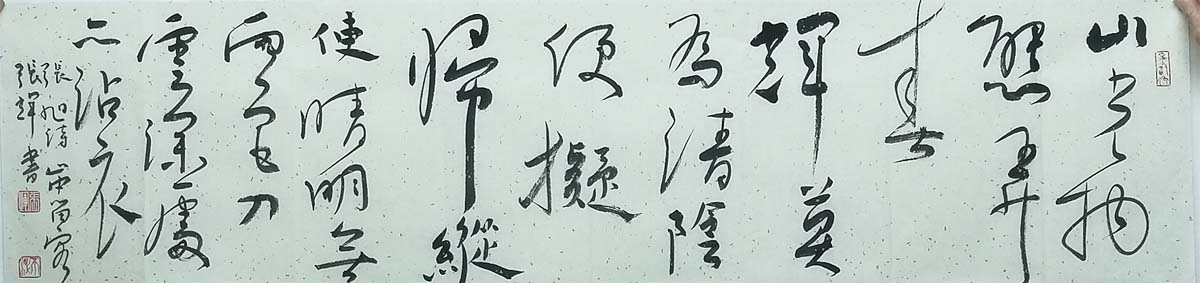 山光物
態弄
春
輝莫
為清陰
便擬
歸縱
使晴明無
雨色入
雲深處
亦沾衣
張旭詩山中留客
張輝書